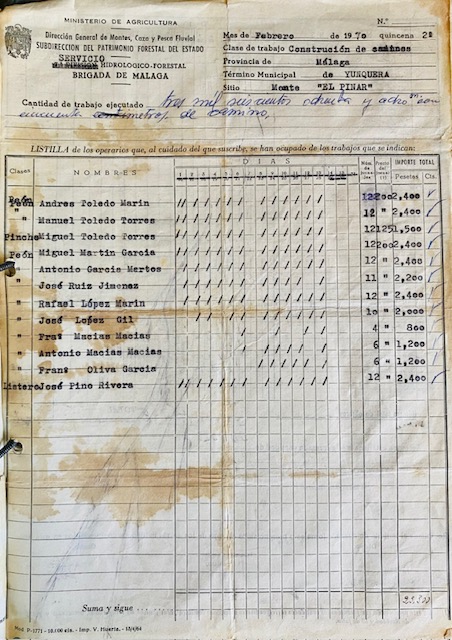 MINISTERIO DE AGRICULTURA
Dirección General de Montes, Caza y Pesca Fluvial
SUBDIRECCION DEL PATRIMONIO FORESTAL DEL ESTADO
SERVICIO
HIDROLOGICO-FORESTAL
BRIGADA DE MALAGA
N.º
Mes de Febrero de 1970 quincena 2ª
Clase de trabajo Construción de caminos
Provincia de Málaga
Término Municipal de YUNQUERA
Sitio Monte "EL PINAR"
Cantidad de trabajo ejecutado tres mil seiscientos ochenta y ocho con
cincuenta centimetros de camino.
LISTILLA de los operarios que, al cuidado del que suscribe, se han ocupado de los trabajos que se indican:
Clases NOMBRES DIAS IMPORTE TOTAL
Pesetas Cts.
Peón Andres Toledo Marin 12 200 2,400
" Manuel Toledo Torres 12 " 2,400
Pinche Miguel Toledo Torres 12 125 1,500
Peón Miguel Martin Garcia 12 200 2,400
" Antonio Garcia Mertos 12 " 2,400
" José Ruiz Jimenez 11 " 2,200
" Rafael López Marin 12 " 2,400
" José Lopez Gil 10 " 2,000
" Franº Macias Macias 4 " 800
" Antonio Macias Macias 6 " 1,200
" Franº Oliva Garcia 6 " 1,200
Listero José Pino Rivera 12 " 2,400
Suma y sigue
Mod. P-1771 - 10.000 ejs. - Imp. V. Huerta. - 13/4/64